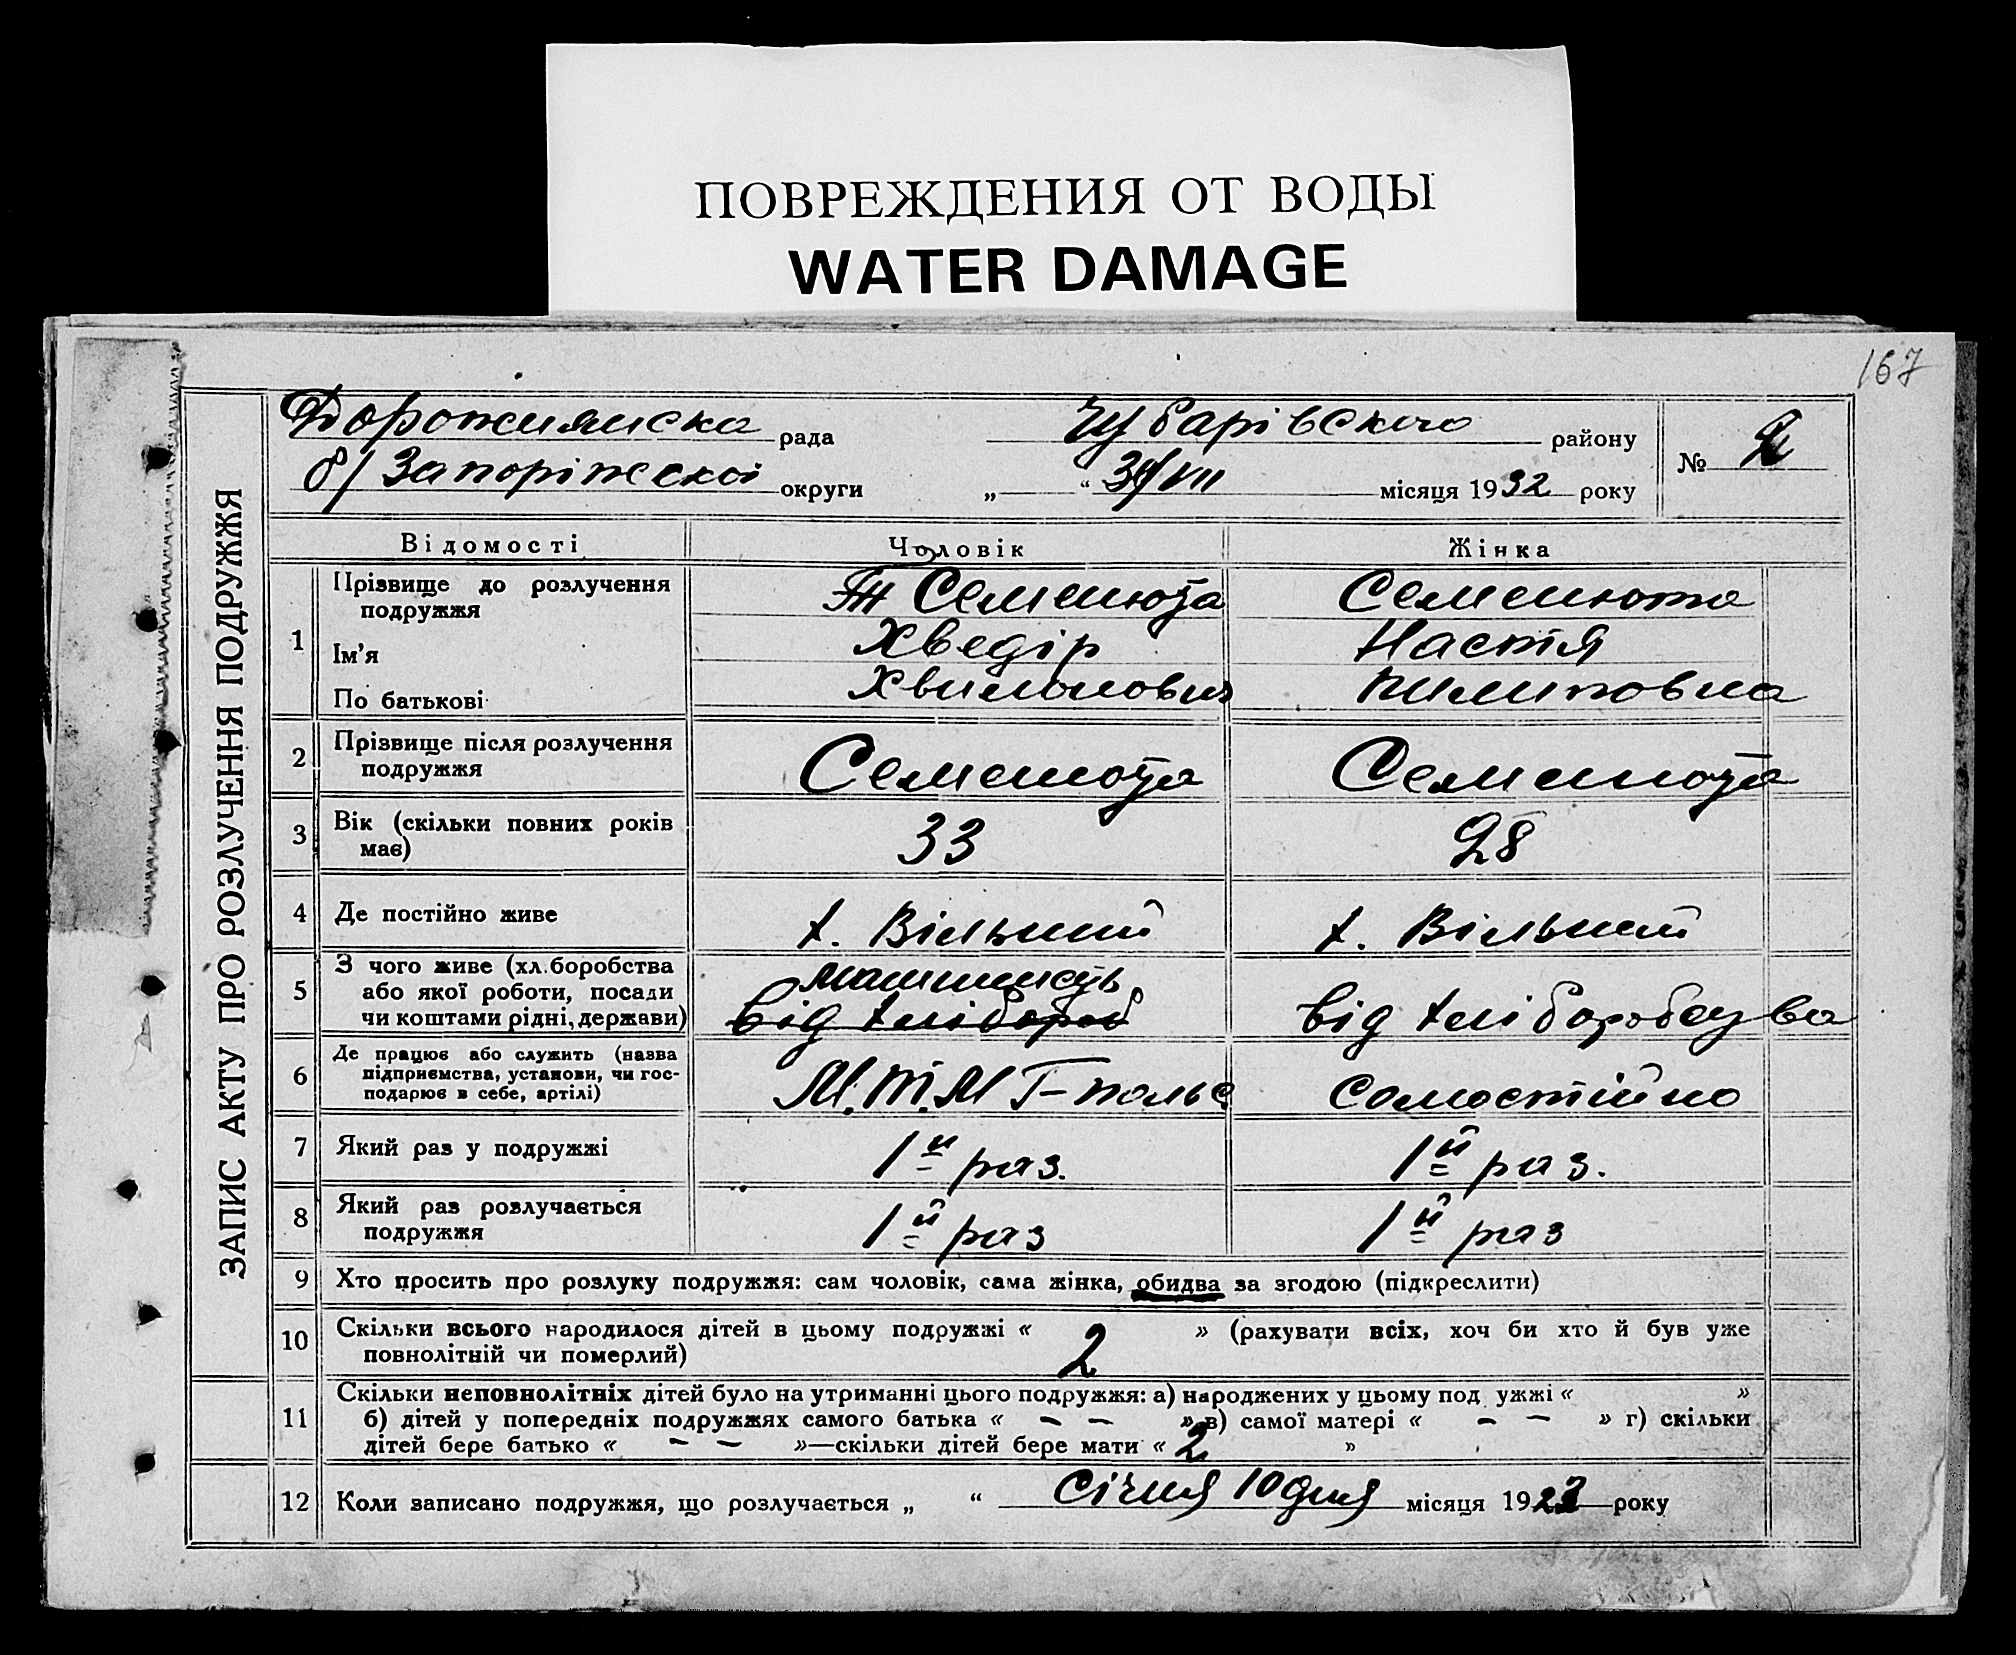 ПОВРЕЖДЕНИЯ ОТ ВОДЫ
WATER DAMAGE
167
ЗАПИС АКТУ ПРО РОЗЛУЧЕННЯ ПОДРУЖЖЯ
Дорожнянска рада Чубарівського району
№
б/ Запоріжскої округи „ “ /VII місяця 1932 року
Відомості Чоловік Жінка
1 Прізвище до розлучення подружжя Семенюта Семенюта
Ім'я Хведір Настя
По батькові Хвилимович Пилиповна
2 Прізвище після розлучення подружжя Семенюта Семенюта
3 Вік (скільки повних років має) 33 28
4 Де постійно живе х. Вільний х. Вільний
5 З чого живе (хл.боробства або якої роботи, посади чи коштами рідні, держави) машиність від хлібороб від хліборобства
6 Де працює або служить (назва підприємства, установи, чи господарює в себе, артілі) М.Т.М Г-польс. самостійно
7 Який раз у подружжі 1й раз. 1й раз.
8 Який раз розлучається подружжя 1й раз 1й раз
9 Хто просить про розлуку подружжя: сам чоловік, сама жінка, обидва за згодою (підкреслити)
10 Скільки всього народилося дітей в цьому подружжі « 2 » (рахувати всіх, хоч би хто й був уже
повнолітній чи померлий)
11 Скільки неповнолітніх дітей було на утриманні цього подружжя: а) народжених у цьому под ужжі « »
б) дітей у попередніх подружжях самого батька « – – » в) самої матері « – – » г) скільки
дітей бере батько « – – »—скільки дітей бере мати « 2 »
12 Коли записано подружжя, що розлучається „ “ Січня 10 дня місяця 1923 року